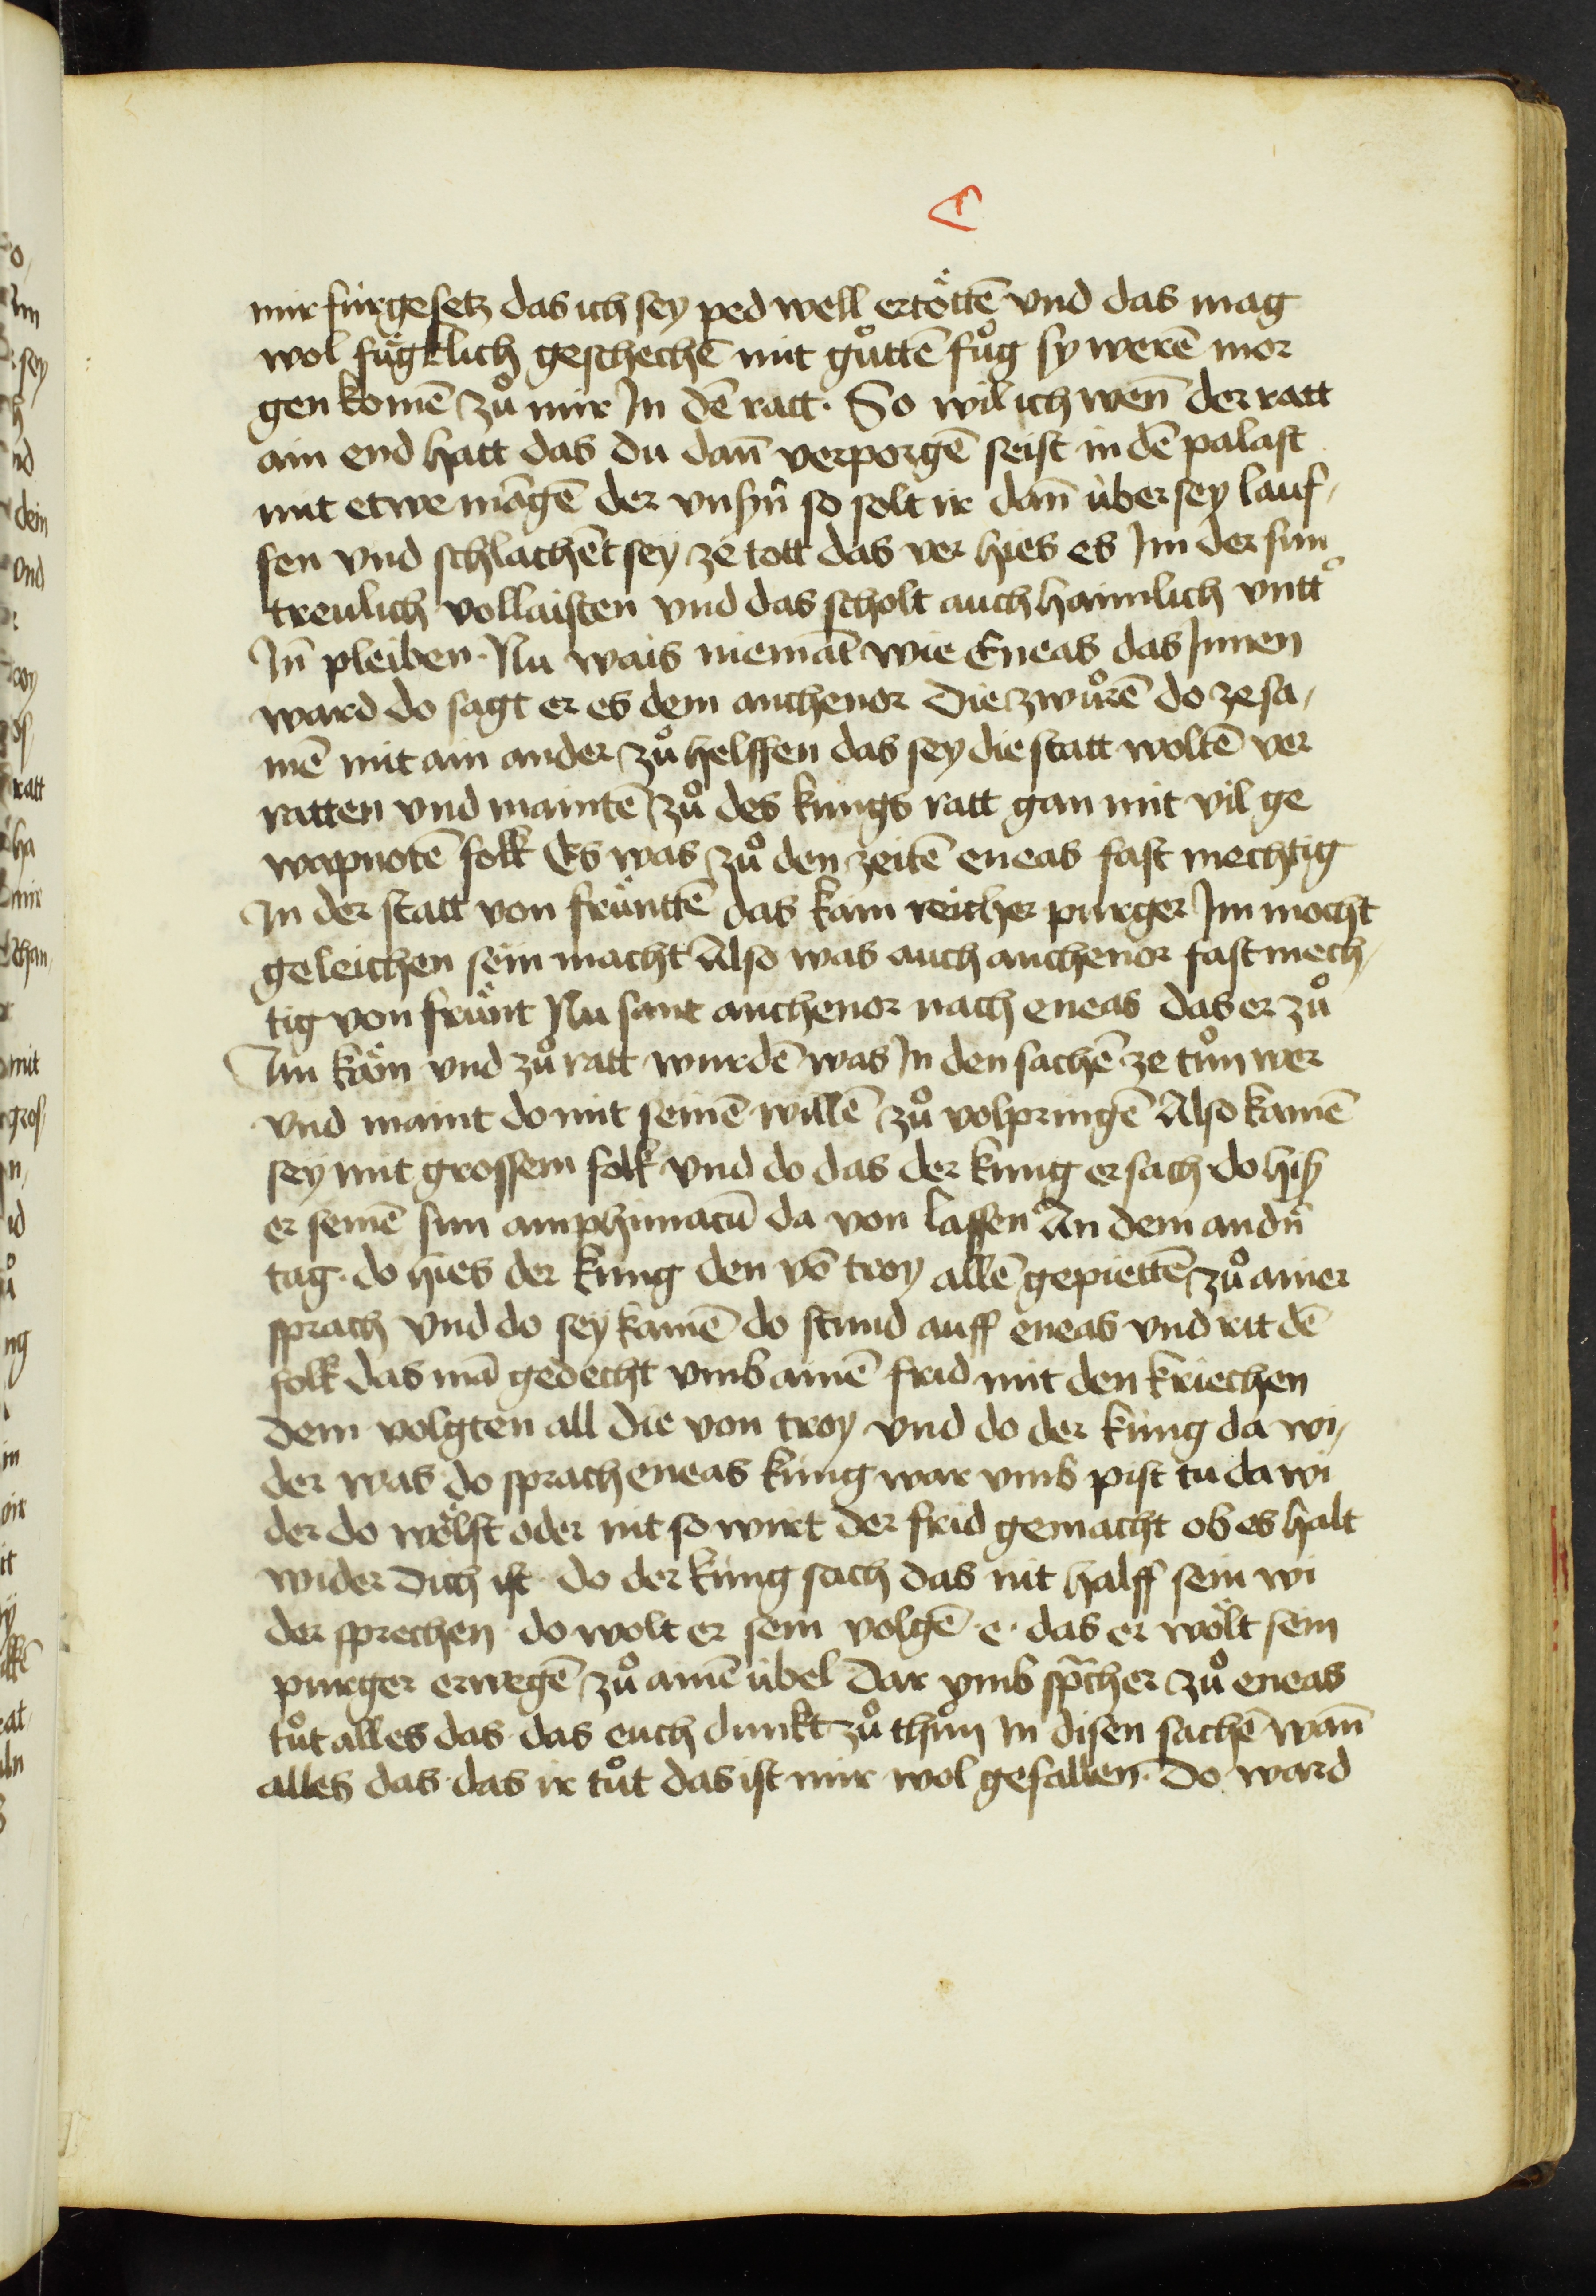 mir fúrgesetz das ich sey ped well ertöttē vnd das mag
wol fügklich geschechē mit gůttē fůg sy werē mor
gen komē zů mir Jn dē ratt · So wil ich wen̄ der ratt
ain end hatt das du dan̄ verporgē seist in dē palast
mit etwe māgē der vnsyn̄ so solt ir dan̄ über sey lauf
fen vnd schlachēt sey ze tott das ver hies es Jm der sun
treulich vollaisten vnd das scholt auch haimlich vntt
Jn̄ pleiben · Nu wais niemāt wie Eneas das Jnnen
ward do sagt er es dem anthenor Die zwůrē do ze sa
mē mit ain ander zů helffen das sey die statt woltē ver
ratten vnd maintē zů des kungs ratt gan mit vil ge
wapnotē folk Es was zů den zeitē eneas fast mechtig
Jn der statt von früntē das kain reicher purger Jm mocht
geleichen sein macht Also was auch anthenor fast mech
tig von frünt Nu sant anthenor nach eneas das er zů
Jm käm vnd zů ratt wurdē was Jn den sachē ze tůn wer
vnd maint do mit seinē willē zů volpringē Also kamē
sey mit grossem folk vnd do das der kung ersach do hiß
er seinē sun amphimacū da von lassen An dem andn̄
tag · do hies der kung den vō troy allē gepiettē zů ainer
sprach Vnd do sey kamē do stund auff eneas vnd rit dē
folk das mā gedecht vmb ainē frid mit den kriechen
Dem volgten all die von troy vnd do der kúng da wi
der was do sprach eneas kúng war vmb pist tu da wi
der do wölst oder nit so wirt der frid gemacht ob es halt
wider dich ist · do der kúng sach das nit halff sein wi
der sprechen · do wolt er sein volgē · e · das er wölt sein
purger erwegē zů ainē übel Dar vmb sprach er zů eneas
tůt alles das · das euch dunkt zů thůn in disen sachē wan̄
alles das · das ir tůt das ist mir wol gefallen · Do ward